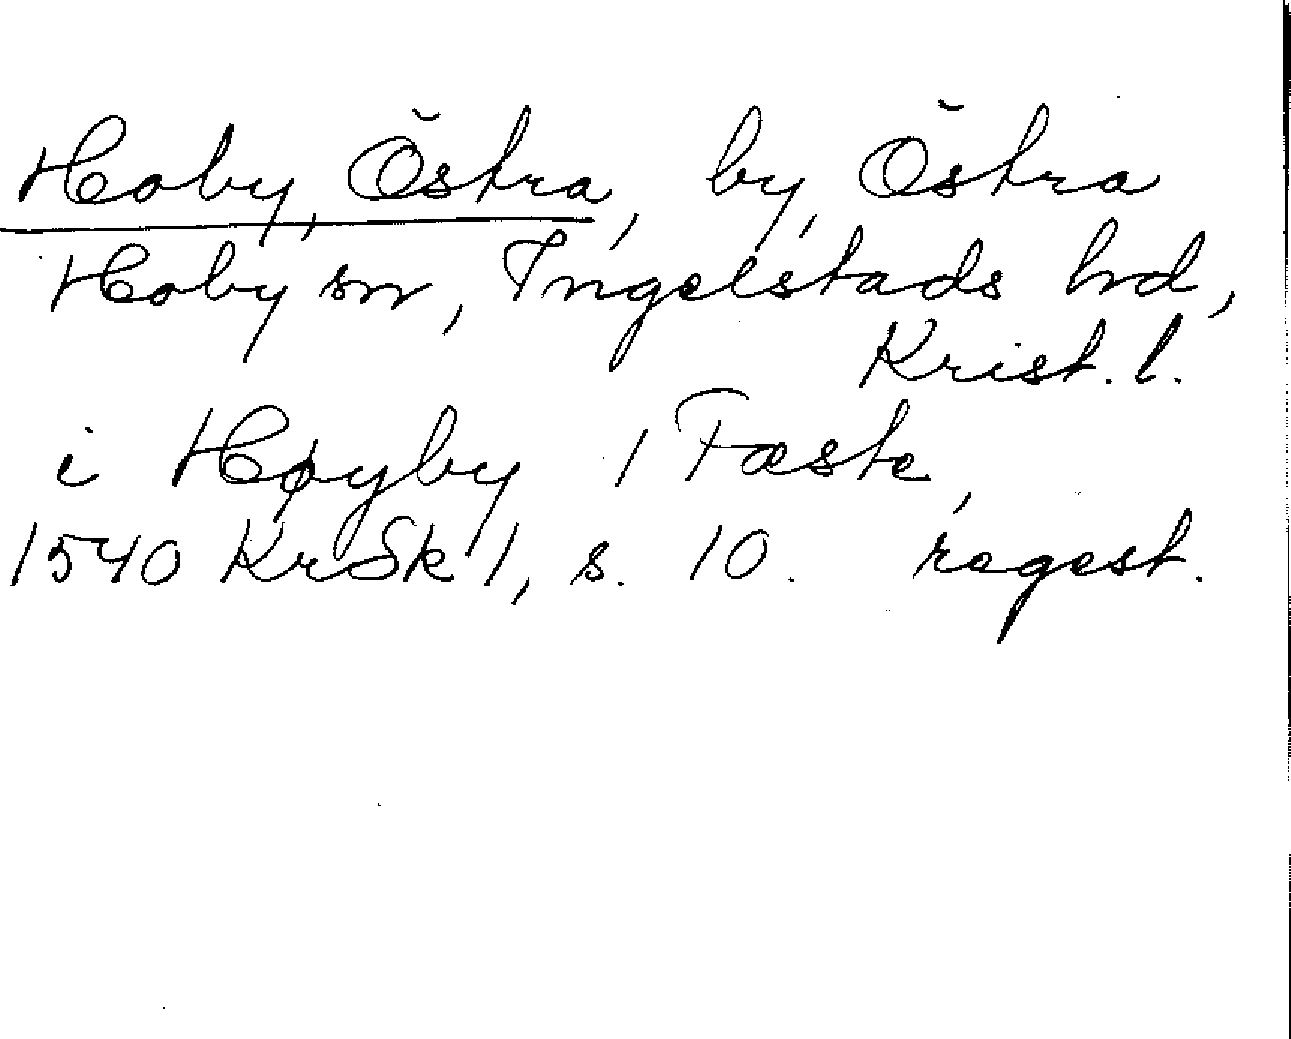 Hoby, Östra, by, Östra
Hoby sn, Ingelstads hd,
Krist. l.
i Høyby 1 Fæste,
1540 KrSk 1, s. 10. regest.